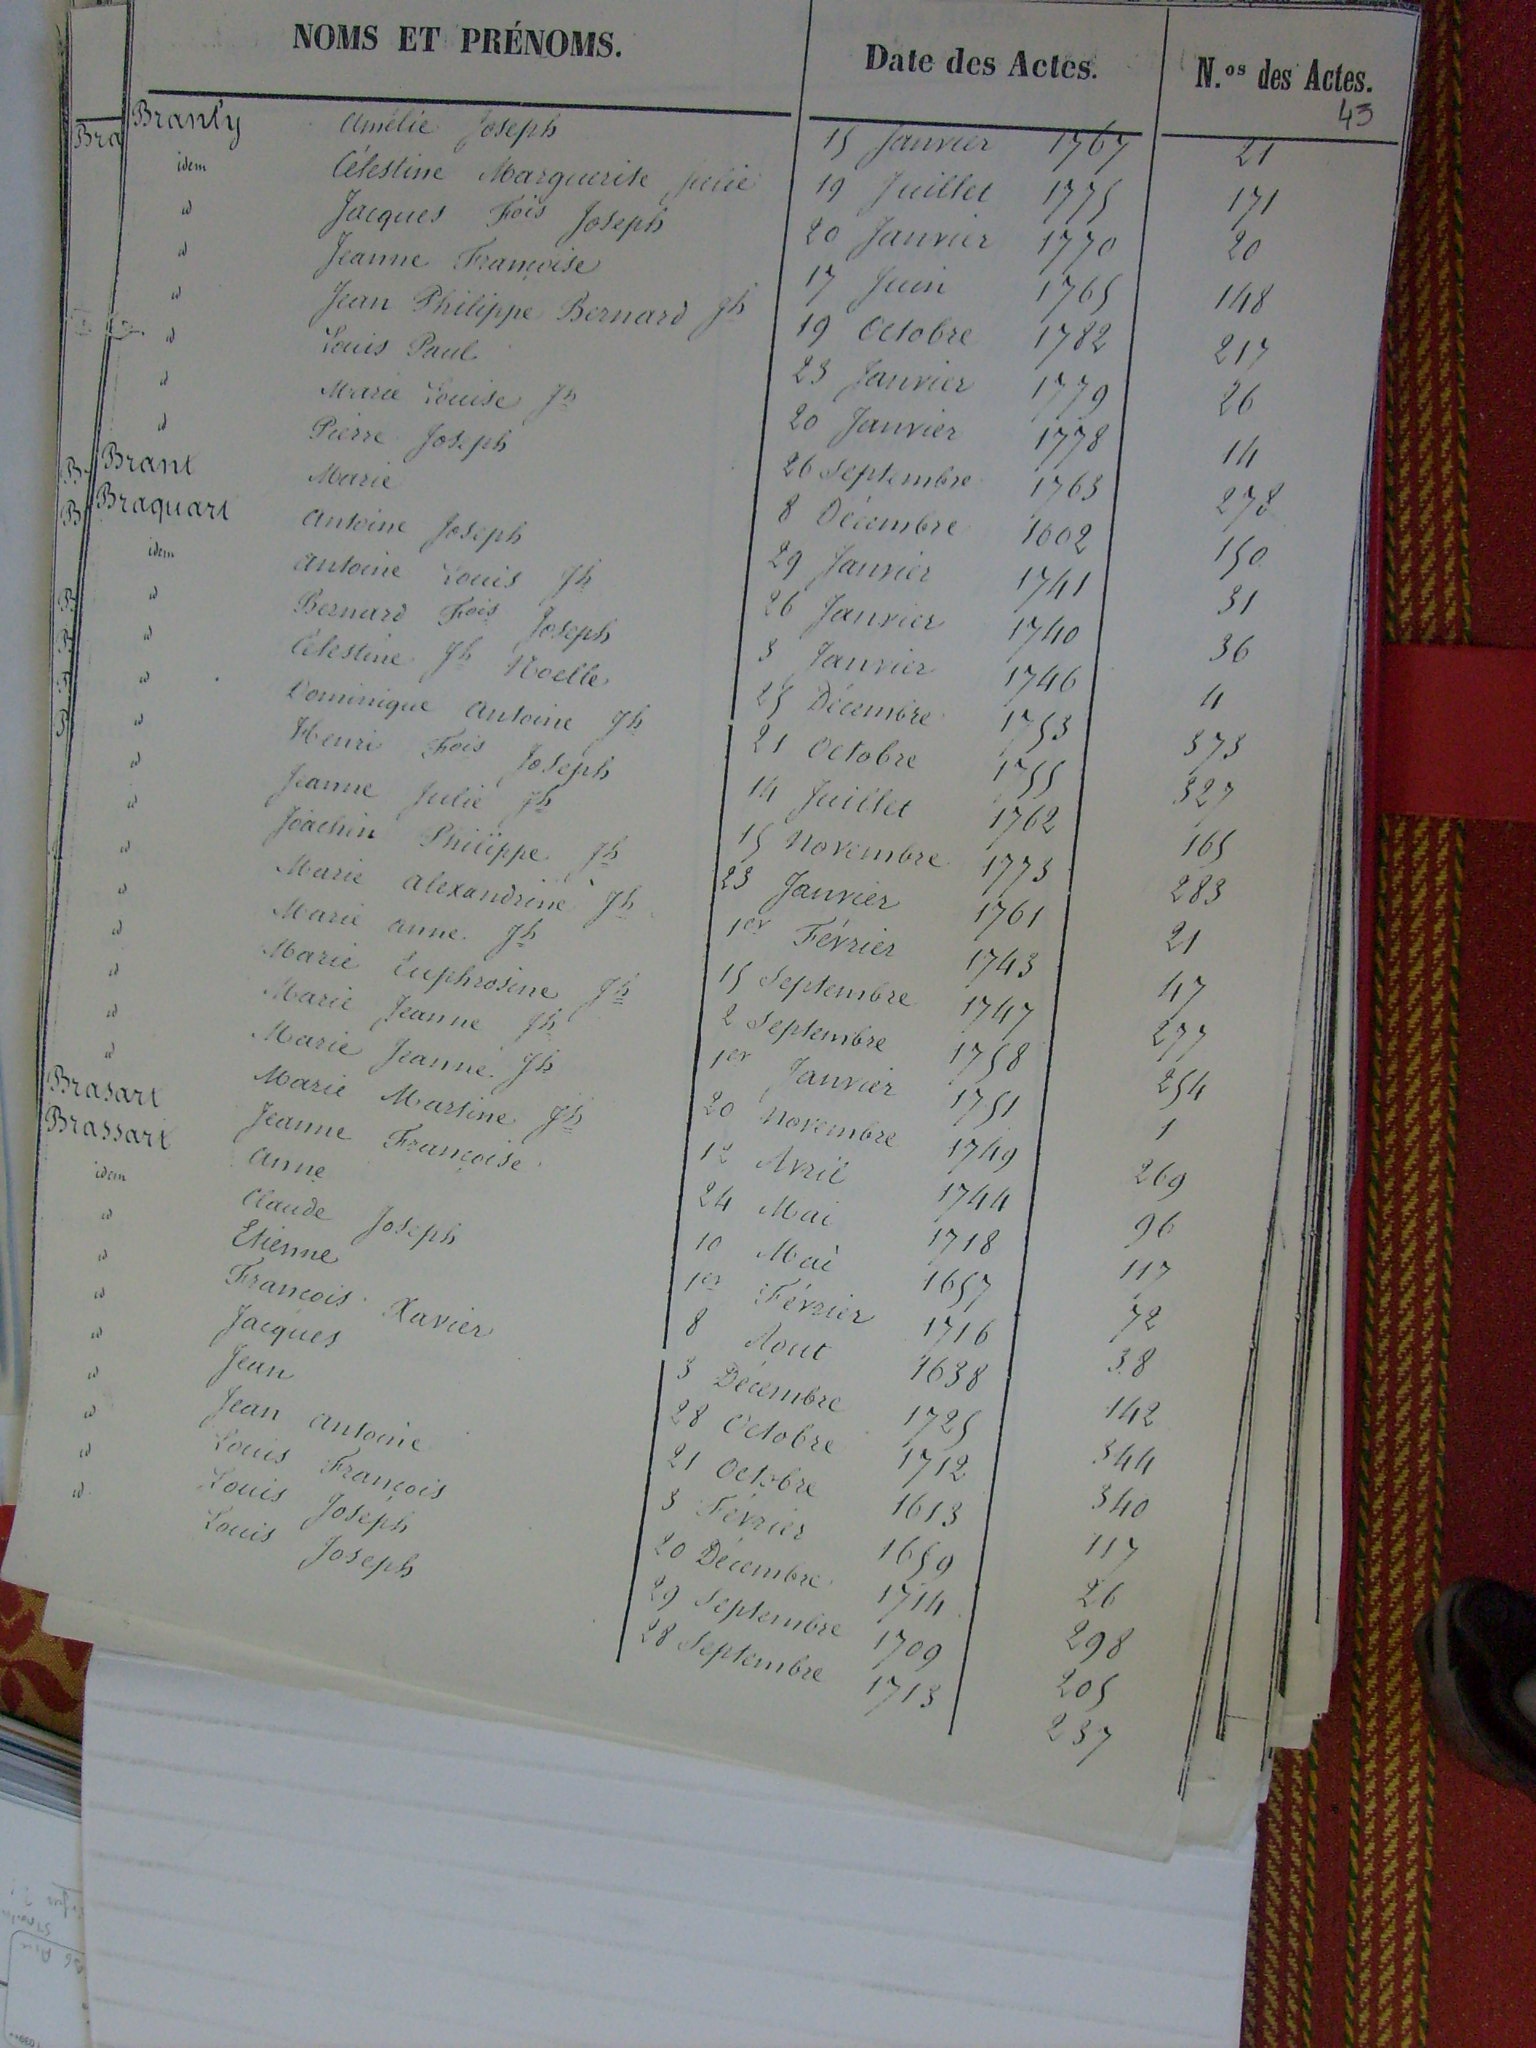 NOMS ET PRÉNOMS. Date des Actes. N.os des Actes.
43
Bra
Branly Amélie Joseph 15 Janvier 1767 21
idem Célestine Marguerite Julie 19 Juillet 1775 171
id Jacques Fois Joseph 20 Janvier 1770 20
id Jeanne Françoise 17 Juin 1765 148
id Jean Philippe Bernard Jh 19 Octobre 1782 217
id Louis Paul 23 Janvier 1779 26
id Marie Louise Jh 20 Janvier 1778 14
id Pierre Joseph 26 Septembre 1763 278
Brant Marie 8 Décembre 1602 150
Braquart Antoine Joseph 29 Janvier 1741 31
idem Antoine Louis Jh 26 Janvier 1740 36
id Bernard Fois Joseph 3 Janvier 1746 4
id Célestine Jh Noelle 25 Décembre 1753 373
id Dominique Antoine Jh 21 Octobre 1755 327
id Henri Fois Joseph 14 Juillet 1762 165
id Jeanne Julie Jh 15 Novembre 1773 283
id Joachin Philippe Jh 23 Janvier 1761 21
id Marie Alexandrine Jh 1er Février 1743 47
id Marie Anne Jh 15 Septembre 1747 277
id Marie Euphrosine Jh 2 Septembre 1758 254
id Marie Jeanne Jh 1er Janvier 1751 1
id Marie Jeanne Jh 20 Novembre 1749 269
id Marie Martine Jh 12 Avril 1744 96
Brasart Jeanne Françoise 24 Mai 1718 117
Brassart Anne 10 Mai 1657 72
idem Claude Joseph 1er Février 1716 38
id Etienne 8 Aout 1638 142
id François Xavier 3 Décembre 1725 344
id Jacques 28 Octobre 1712 340
id Jean 21 Octobre 1613 117
id Jean Antoine 3 Février 1659 26
id Louis François 20 Décembre 1714 298
id Louis Joseph 29 Septembre 1709 205
id Louis Joseph 28 Septembre 1713 237